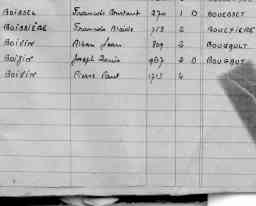 BOISSEL François Constant 270 1 0 BOUESSET
BOISSIÈRE Francois 2 BOUEXIERE
BOISIN Alban Jean 809 2 BOUGAULT
BOISIN Joseph Louis 957 2 0 BOUGAUT
BOISIN Pierre Paul 1713 4